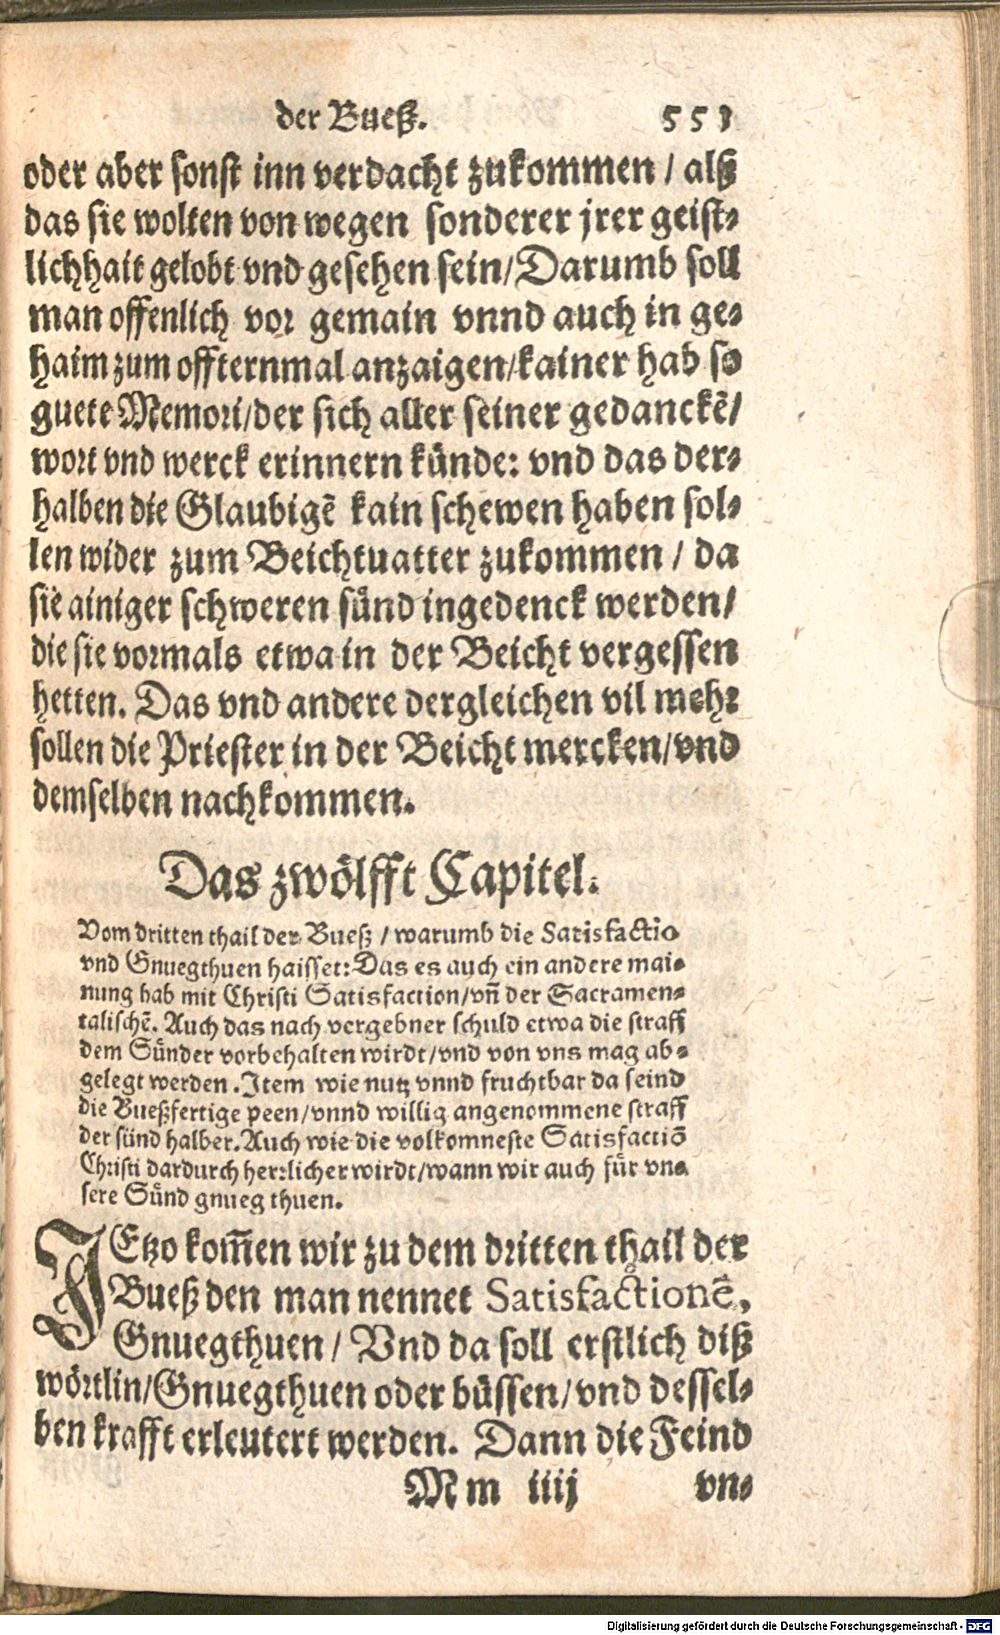 der Bueß. 551
oder aber sonst inn verdacht zukommen / alß
das sie wolten von wegen sonderer jrer geist-
lichhait gelobt vnd gesehen sein/Darumb soll
man offenlich vor gemain vnnd auch in ge-
haim zum offternmal anzaigen/kainer hab so
guete Memori/der sich aller seiner gedanckẽ/
wort vnd werck erinnern künde: vnd das der-
halben die Glaubigẽ kain schewen haben sol-
len wider zum Beichtuatter zukommen / da
sie ainiger schweren sünd ingedenck werden/
die sie vormals etwa in der Beicht vergessen
hetten. Das vnd andere dergleichen vil mehr
sollen die Priester in der Beicht mercken/vnd
demselben nachkommen.
Das zwölfft Capitel.
Vom dritten thail der Bueß / warumb die Satisfactio
vnd Gnuegthuen haisset: Das es auch ein andere mai-
nung hab mit Christi Satisfaction/vñ der Sacramen-
talischẽ. Auch das nach vergebner schuld etwa die straff
dem Sünder vorbehalten wirdt/vnd von vns mag ab-
gelegt werden. Item wie nutz vnnd fruchtbar da seind
die Bueßfertige peen/vnnd willig angenommene straff
der sünd halber. Auch wie die volkomneste Satisfactiõ
Christi dardurch herrlicher wirdt/wann wir auch für vn-
sere Sünd gnueg thuen.
JEtzo kom̃en wir zu dem dritten thail der
Bueß den man nennet Satisfactionẽ,
Gnuegthuen / Vnd da soll erstlich diß
wörtlin/Gnuegthuen oder büssen/vnd dessel-
ben krafft erleutert werden. Dann die Feind
Mm iiij vn-
Digitalisierung gefördert durch die Deutsche Forschungsgemeinschaft - DFG